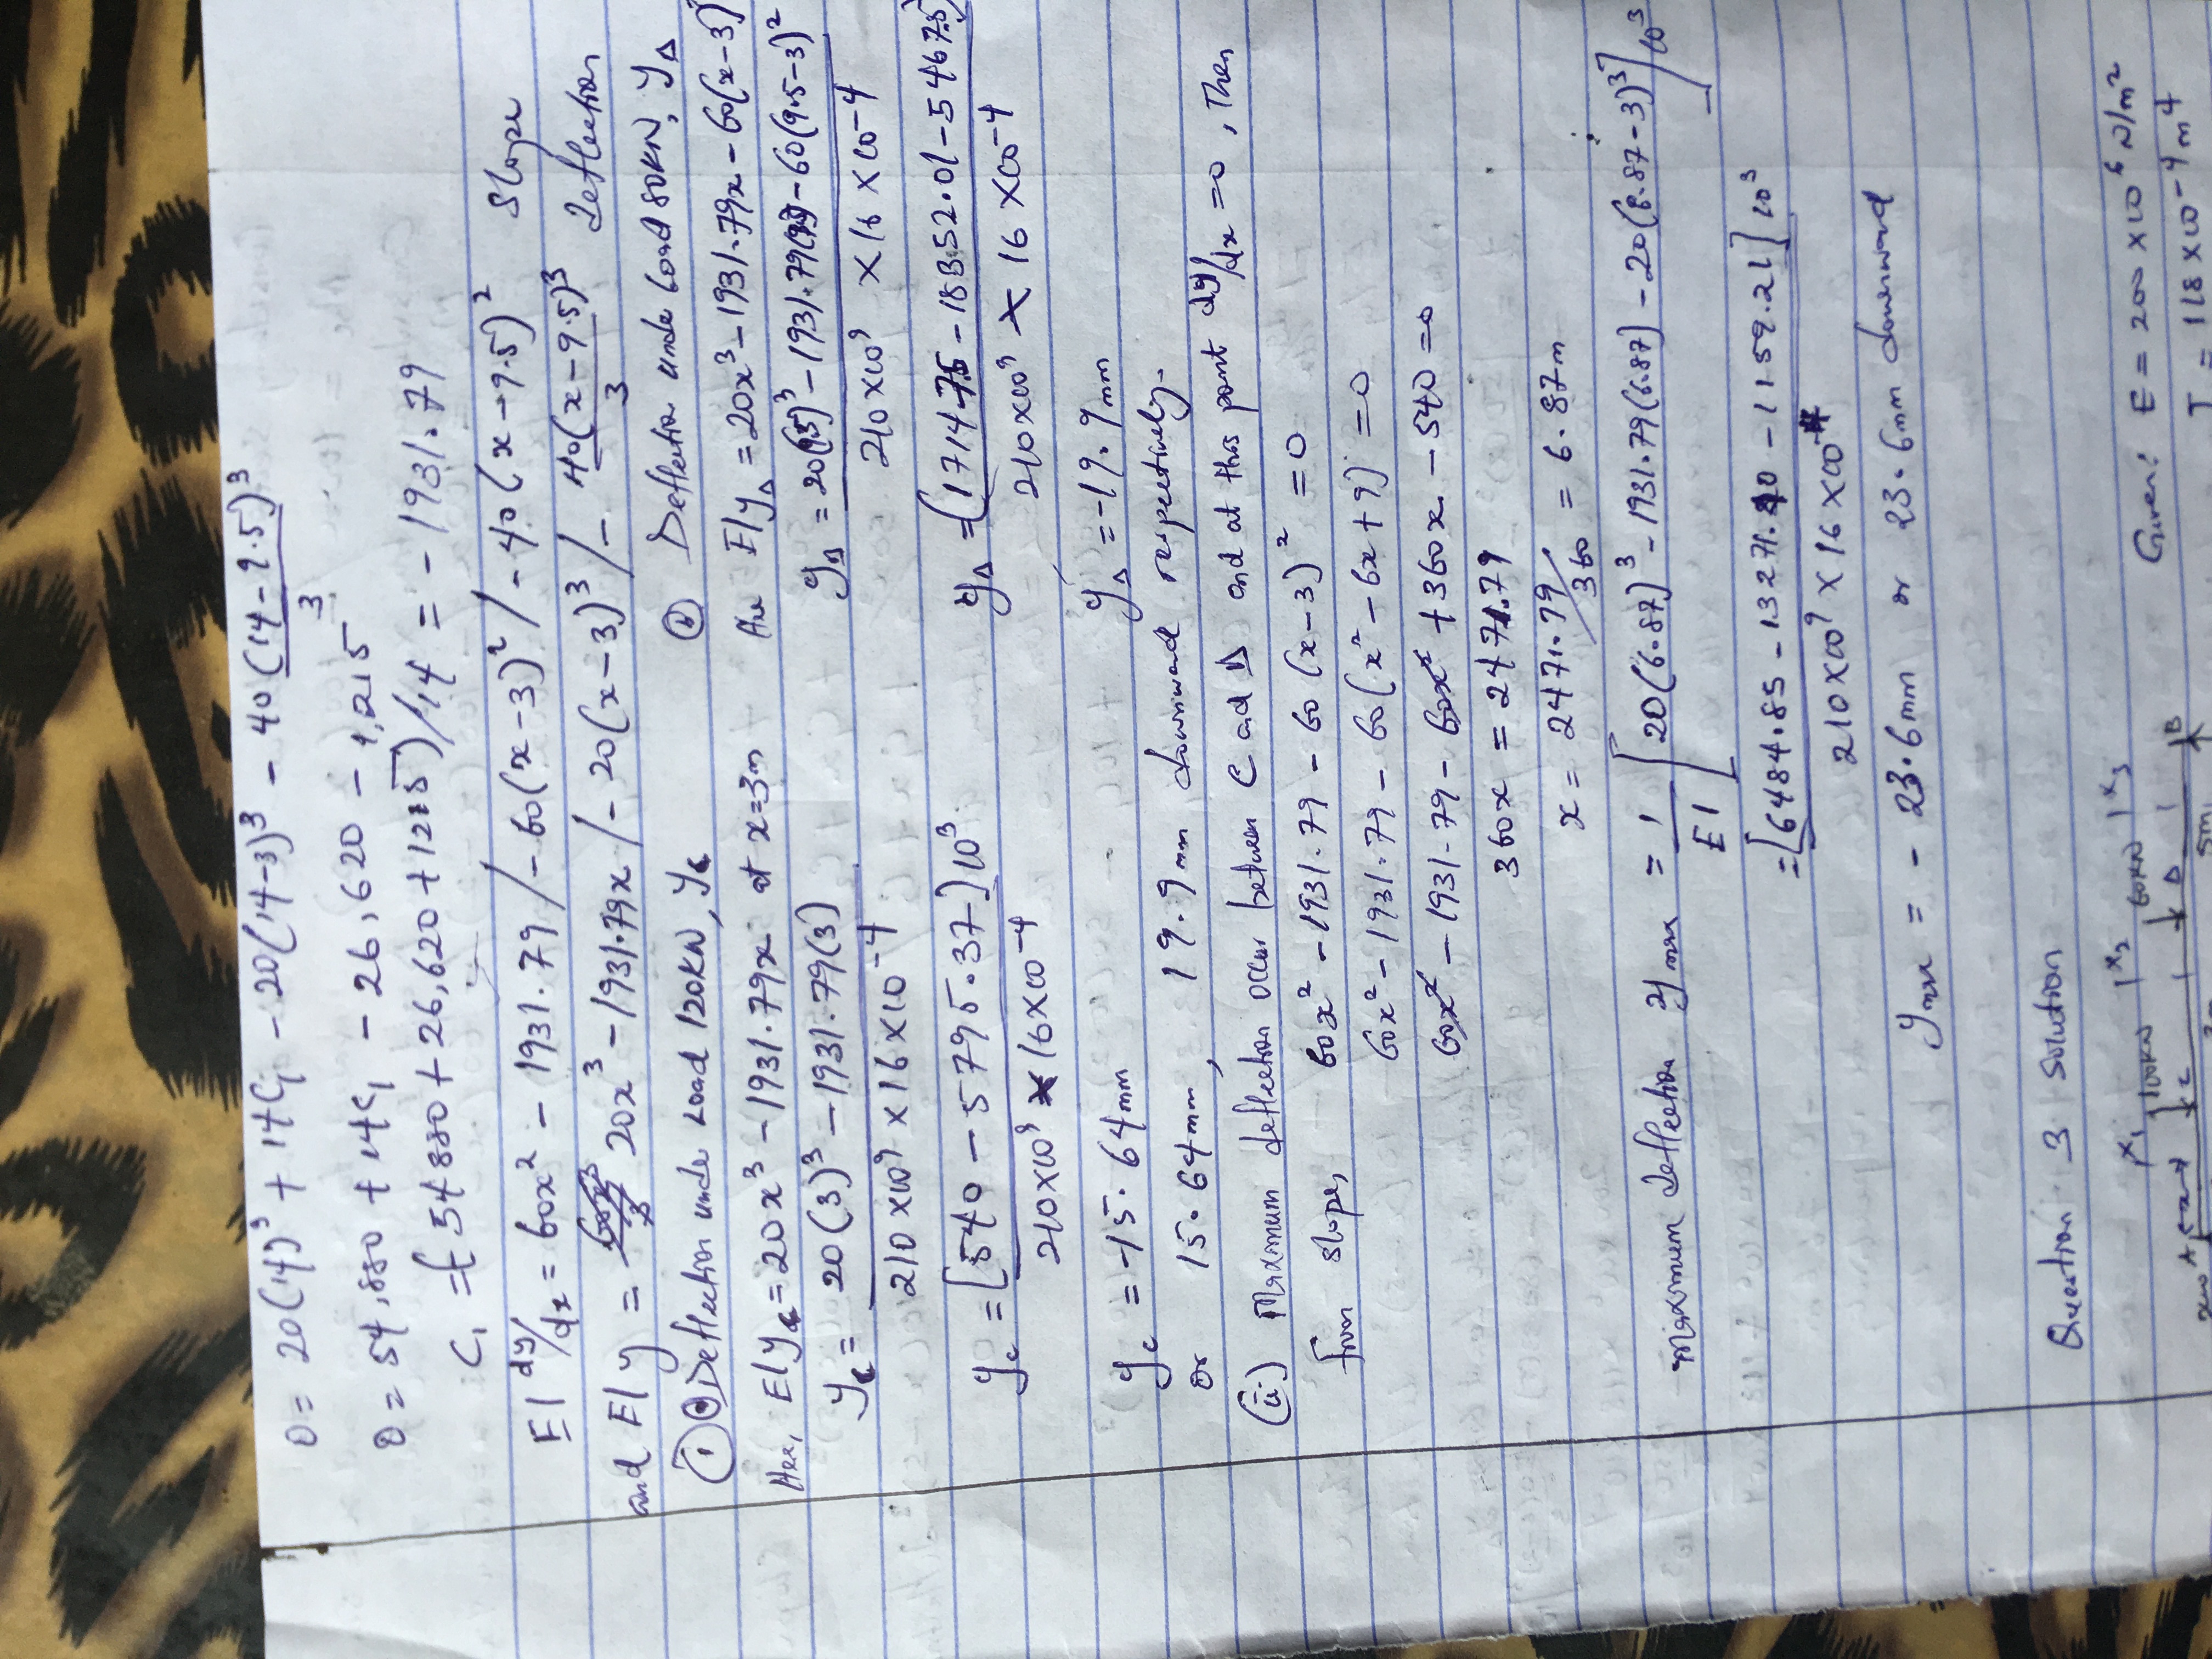 0 = 20(14)³ + 14C₁ - 20(14-3)³ - 40(14-9.5)³/3
0 = 54,880 + 14C₁ - 26,620 - 1,215
C₁ = (-54880 + 26,620 + 1215)/14 = -1931.79
EI dy/dx = 60x² - 1931.79 / - 60(x-3)² / - 40(x-9.5)² Slope
and EI y = 20x³ - 1931.79x / - 20(x-3)³ / - 40(x-9.5)³/3 deflection
(i) (a) Deflection under Load 120KN, yc
Hex, EIyc = 20x³ - 1931.79x at x=3m
yc = 20(3)³ - 1931.79(3) / 210×10⁹ × 16×10⁻⁴
yc = [540 - 5795.37]10³ / 210×10⁹ × 16×10⁻⁴
yc = -15.64mm
(b) Deflection under Load 80KN, yD
EIyD = 20x³ - 1931.79x - 60(x-3)
yD = 20(9.5)³ - 1931.79(9.5) - 60(9.5-3)² / 210×10⁹ × 16×10⁻⁴
yD = (17147.5 - 18352.01 - 5467.5) / 210×10⁹ × 16×10⁻⁴
yD = -19.9mm
or 15.64mm, 19.9mm downward respectively.
(ii) Maximum deflection occur between C and D and at this point dy/dx = 0, Then
from slope, 60x² - 1931.79 - 60(x-3)² = 0
60x² - 1931.79 - 60(x² - 6x + 9) = 0
60x² - 1931.79 - 60x² + 360x - 540 = 0
360x = 2471.79
x = 2471.79/360 = 6.87m
Maximum deflection ymax = 1/EI [20(6.87)³ - 1931.79(6.87) - 20(6.87-3)³]10³
= [6484.85 - 13271.40 - 1159.21]10³ / 210×10⁹ × 16×10⁻⁴
ymax = -23.6mm or 23.6mm downward
Question 3 Solution
x₁ x₂ x₃
100KN 60KN
A x C D B
5m
Given: E = 200×10⁶ N/m²
I = 118×10⁻⁴m⁴